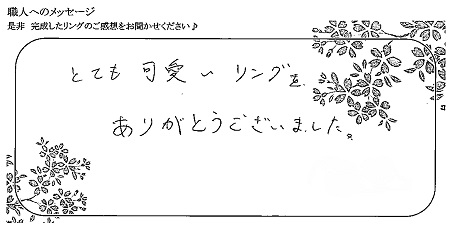 職人へのメッセージ
是非 完成したリングのご感想をお聞かせください♪
とても可愛いリングを、
ありがとうございました。